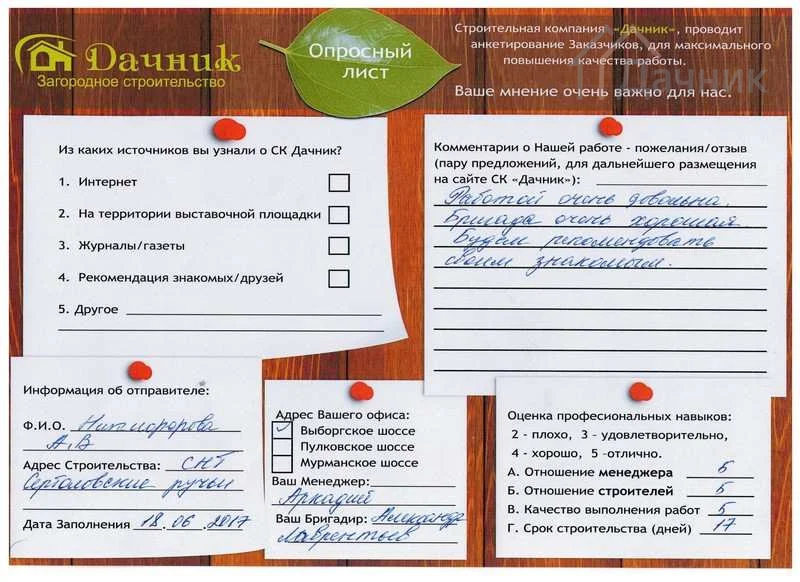 Дачник
Загородное строительство
Опросный
лист
Строительная компания «Дачник», проводит
анкетирование Заказчиков, для максимального
повышения качества работы.
Ваше мнение очень важно для нас.
Дачник
Из каких источников вы узнали о СК Дачник?
1. Интернет
2. На территории выставочной площадки
3. Журналы/газеты
4. Рекомендация знакомых/друзей
5. Другое
Комментарии о Нашей работе - пожелания/отзыв
(пару предложений, для дальнейшего размещения
на сайте СК «Дачник»):
Работой очень довольна.
Бригада очень хорошая.
Будем рекомендовать
своим знакомым.
Информация об отправителе:
Ф.И.О. Никифорова
А.В
Адрес Строительства: СНТ
Сертоловские ручьи
Дата Заполнения 18.06.2017
Адрес Вашего офиса:
✓ Выборгское шоссе
Пулковское шоссе
Мурманское шоссе
Ваш Менеджер:
Аркадий
Ваш Бригадир: Александр
Лаврентьев
Оценка професиональных навыков:
2 - плохо, 3 - удовлетворительно,
4 - хорошо, 5 -отлично.
А. Отношение менеджера 5
Б. Отношение строителей 5
В. Качество выполнения работ 5
Г. Срок строительства (дней) 17